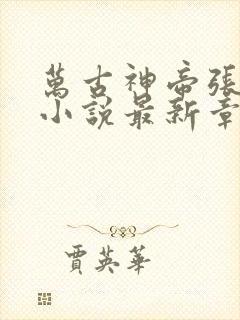 萬古神帝張
小說最新章
賈英華